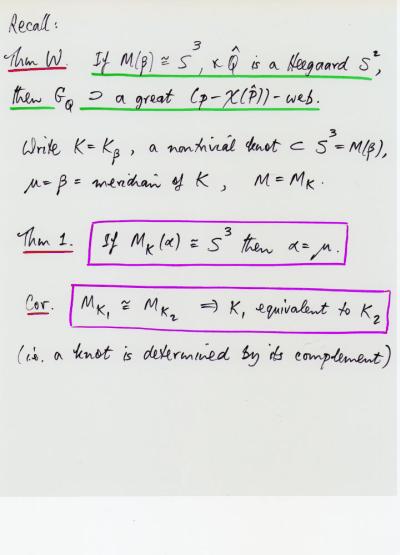 Recall:
Thm W. If M(β) ≅ S³, & Q̂ is a Heegaard S²,
then G_Q ⊃ a great (p-χ(P̂))-web.
Write K = K_β, a nontrivial knot ⊂ S³ = M(β),
μ = β = meridian of K, M = M_K.
Thm 1. If M_K(α) ≅ S³ then α = μ.
Cor. M_K₁ ≅ M_K₂ ⇒ K₁ equivalent to K₂
(i.e. a knot is determined by its complement)